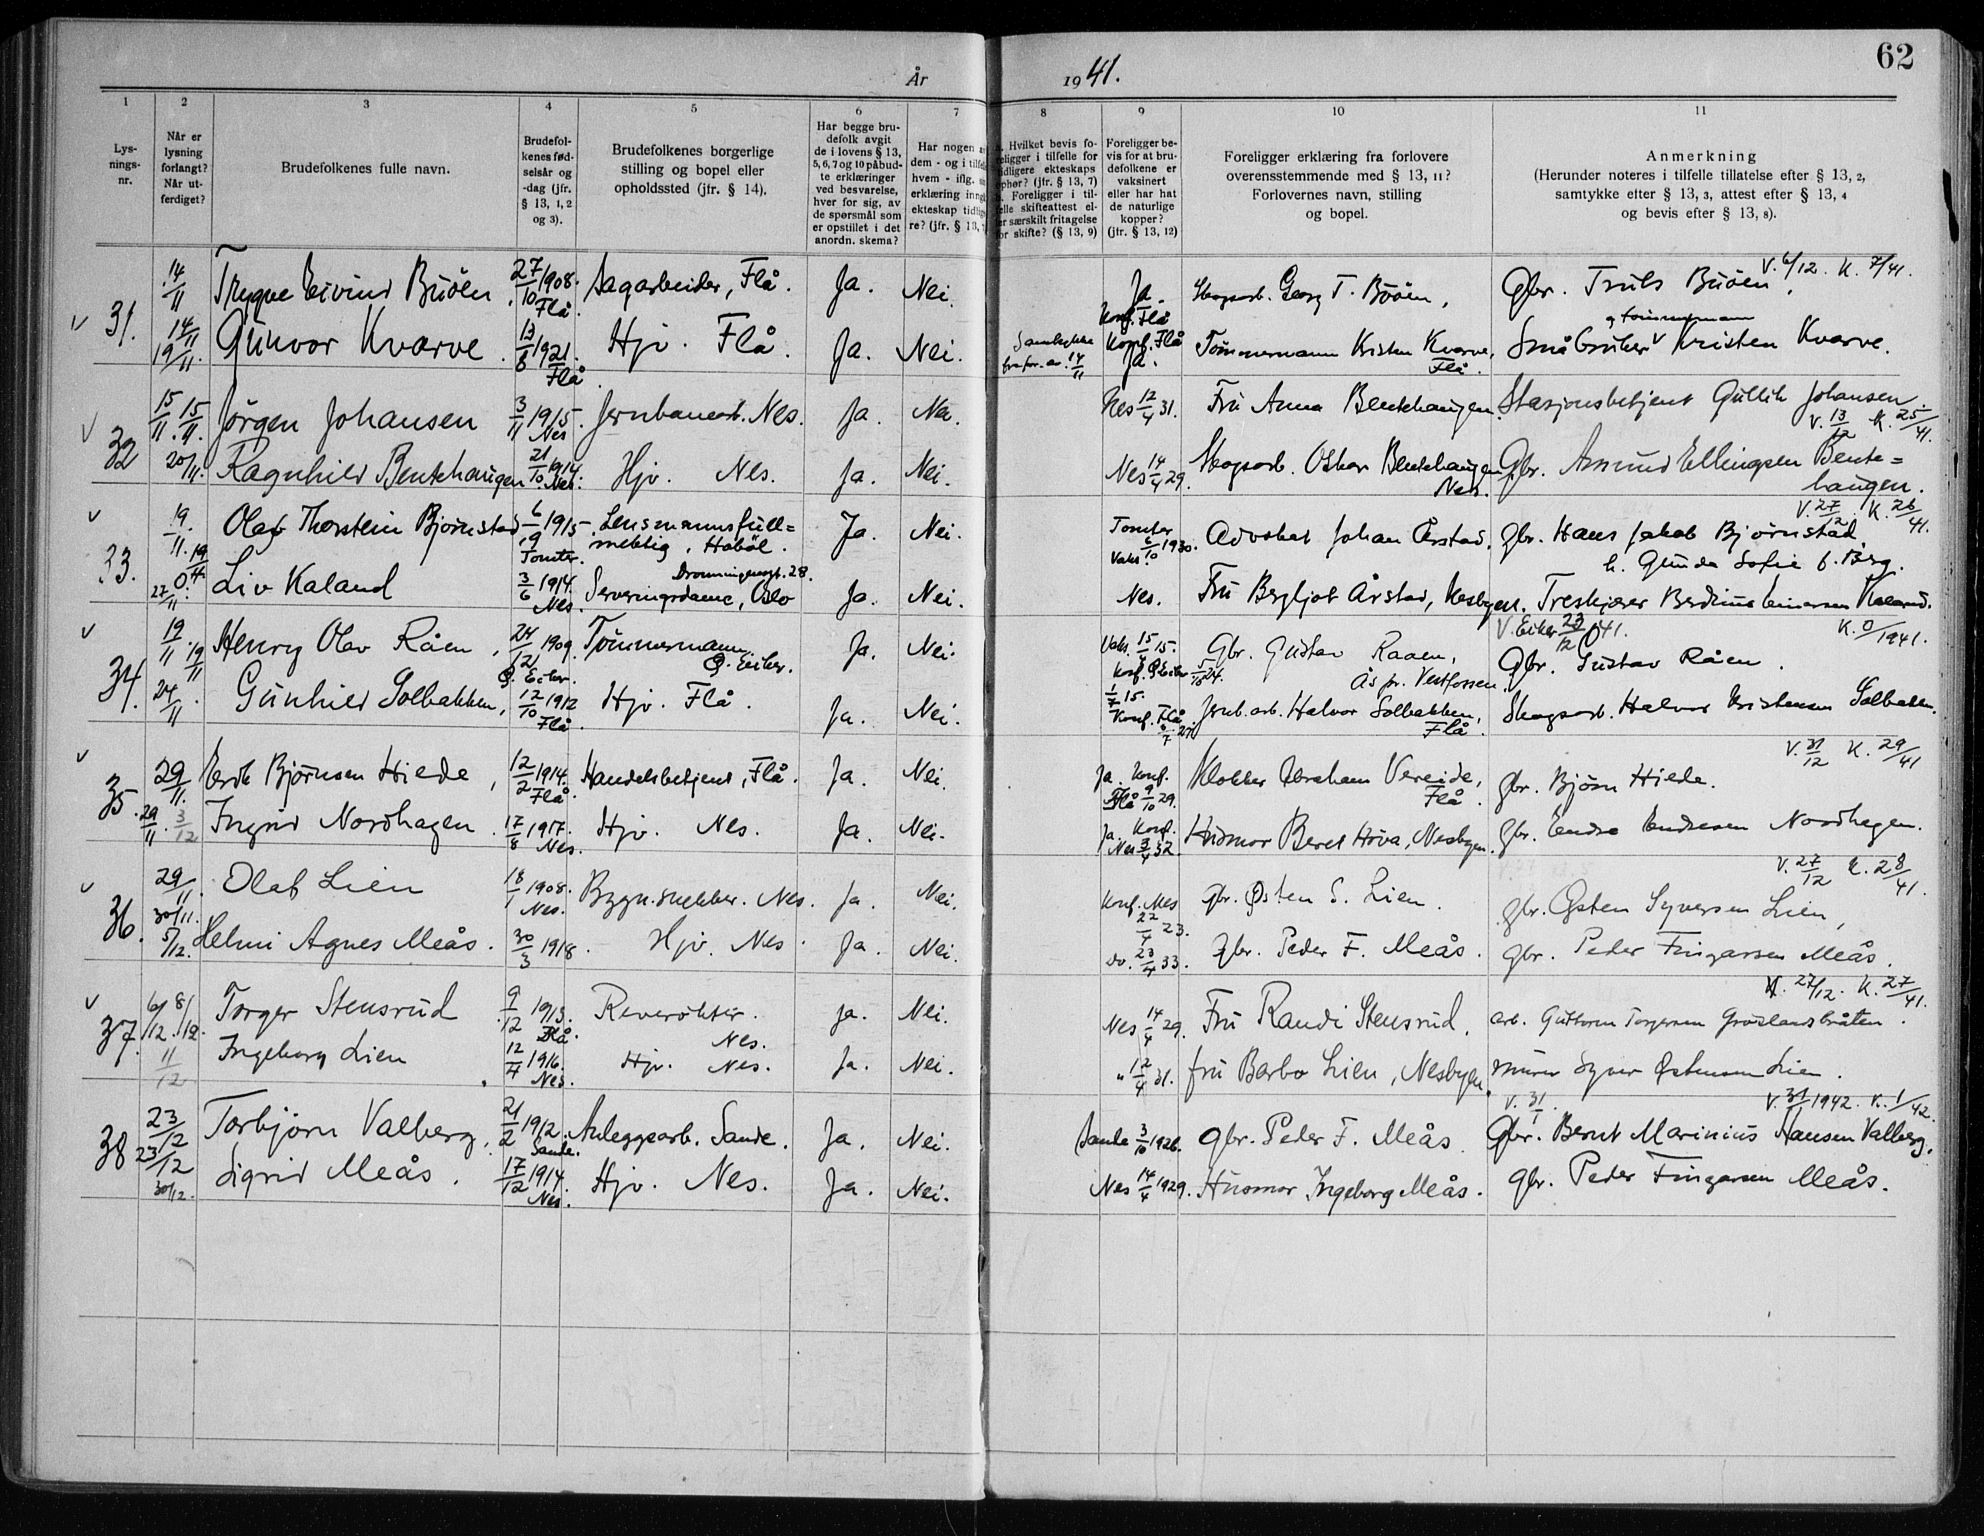 62
År 1941.
1 2 3 4 5 6 7 8 9 10 11
Lys-
nings-
nr.
Når er
lysning
forlangt?
Når ut-
ferdiget?
Brudefolkenes fulle navn.
Brudefol-
kenes fød-
selsår og
-dag (jfr.
§ 13, 1, 2
og 3).
Brudefolkenes borgerlige
stilling og bopel eller
opholdssted (jfr. § 14).
Har begge bru-
defolk avgit
de i lovens § 13,
5, 6, 7 og 10 påbud-
te erklæringer
ved besvarelse,
hver for sig, av
de spørsmål som
er opstillet i det
anordn. skema?
Har nogen
dem - og i tilfelle
hvem - iflg.
erklæring inngått
ekteskap tidlige-
re? (jfr. § 13,
a. Hvilket bevis fo-
religger i tilfelle for
tidligere ekteskaps
ophør? (jfr. § 13, 7)
b. Foreligger i til-
felle skifteattest el-
ler særskilt fritagelse
for skifte? (§ 13, 9)
Foreligger be-
vis for at bru-
defolkene er
vaksinert
eller har hat
de naturlige
kopper?
(jfr. § 13, 12)
Foreligger erklæring fra forlovere
overensstemmende med § 13, 11?
Forlovernes navn, stilling
og bopel.
Anmerkning
(Herunder noteres i tilfelle tillatelse efter § 13, 2,
samtykke efter § 13, 3, attest efter § 13, 4
og bevis efter § 13, 8).
V. 6/12. K. 7/41.
31. 14/11 Trygve Eivind Buöen 27/10 1908. Flå. Sagarbeider, Flå. Ja. Nei. Ja. Konf. Flå Skogsarb. Georg T. Buöen, Gbr. Truls Buöen,
v 14/11 19/11. Gunvor Kvarve. 13/8 1921. Flå. Hjv. Flå. Ja. Nei. Samtykke fra for. av. 14/11 Konf. Flå Ja. Tömmermann Kristen Kvarve, Flå. Småbruker og tömmermann Kristen Kvarve.
v 32 15/11. 15/11. Jörgen Johansen 3/11 1915. Nes Jernbanearb. Nes. Ja. Nei. Nes 12/4 31. Fru Anna Bentehaugen. Stasjonsbetjent Gullik Johansen.
V. 13/12 K. 25/41.
20/11. Ragnhild Bentehaugen 21/10 1914. Nes. Hjv. Nes. Ja. Nei. Nes 14/4 29. Skogsarb. Oskar Bentehaugen, Nes. Gbr. Amund Ellingsen Bente=
haugen.
V. 27/12. K. 26/41.
v 33. 19/11. 19/11 Olaf Thorstein Bjørnstad 6/9 1915 Tomter. Lensmannsfull=
mektig, Haböl. Ja. Nei. Tomter 6/10 1930. Vaks. Advokat Johan Årstad. gbr. Hans Jakob Bjørnstad
h. Gunda Sofie f. Berg.
27/11 Liv Kaland 3/6 1914. Nes. Dronningensgt. 28.
Serveringsdame, Oslo Ja. Nei. Nes. Fru Bergljot Årstad, Nesbyen. Treskjærer Berdinus Einarsen Kaland.
V. Eiker 23/12 41. K. 0/1941.
v 34. 19/11. 19/11 Henry Olav Råen, 24/12 1909. Ø. Eiker. Tömmermann. Ø. Eiker. Ja. Nei. Vaks. 15/4 15. Konf. Ø. Eiker 5/10 24. Gbr. Gustav Raaen,
Ås pr. Vestfossen. Gbr. Gustav Råen.
24/11. Gunhild Solbakken, 12/10 1912 Flå. Hjv. Flå. Ja. Nei. 1/7 15. Konf. Flå 3/7 27 Jernb. arb. Halvor Solbakken, Flå. Skogsarb. Halvor Kristensen Solbakken.
V. 31/12 K. 29/41
v 35. 29/11. Erik Bjørnsen Hiede, 12/2 1914. Flå. Handelsbetjent, Flå. Ja. Nei. Ja. Konf. Flå 9/10 29. Klokker Abraham Vereide, Flå. gbr. Bjørn Hiede.
29/11. 3/12 Ingrid Nordhagen. 17/8 1917. Nes. Hjv. Nes. Ja. Nei. Ja. Konf. Nes 3/4 32. Husmor Beret Höva, Nesbyen. gbr. Endre Endresen Nordhagen.
V. 27/12 K. 28/41.
v 36. 29/11. Olaf Lien 18/1 1908. Nes. Bygn.snekker. Nes. Ja. Nei. Konf. Nes 22/4 23. gbr. Østen S. Lien. gbr. Østen Syversen Lien,
30/11. 5/12. Helmi Agnes Meås. 30/3 1918. Hjv. Nes. Ja. Nei. Do. 23/4 33. gbr. Peder F. Meås. gbr. Peder Fingarsen Meås.
V. 27/12. K. 27/41.
v 37. 6/12. 8/12. Torger Stensrud 9/12 1913. Flå. Reverökter. Nes. Ja. Nei. Nes 14/4 29. Fru Randi Stensrud. arb. Guttorm Torgersen Grøslandsbråten.
11/12 Ingeborg Lien 12/4 1916. Nes. Hjv. Nes. Ja. Nei. " 12/4 31. fru Barbo Lien, Nesbyen. murer Syver Østensen Lien.
V. 31/1. V. 31/1 1942. K. 1/42.
38 23/12 Torbjørn Valberg. 21/2 1912. Sande. Anleggsarb. Sande. Ja. Nei. Sande 3/10 1926. gbr. Peder F. Meås. Gbr. Bernt Marinius Hansen Valberg.
23/12 30/12. Sigrid Meås. 17/12 1914. Nes. Hjv. Nes. Ja. Nei. Nes 14/4 1929. Husmor Ingeborg Meås. gbr. Peder Fingarsen Meås.